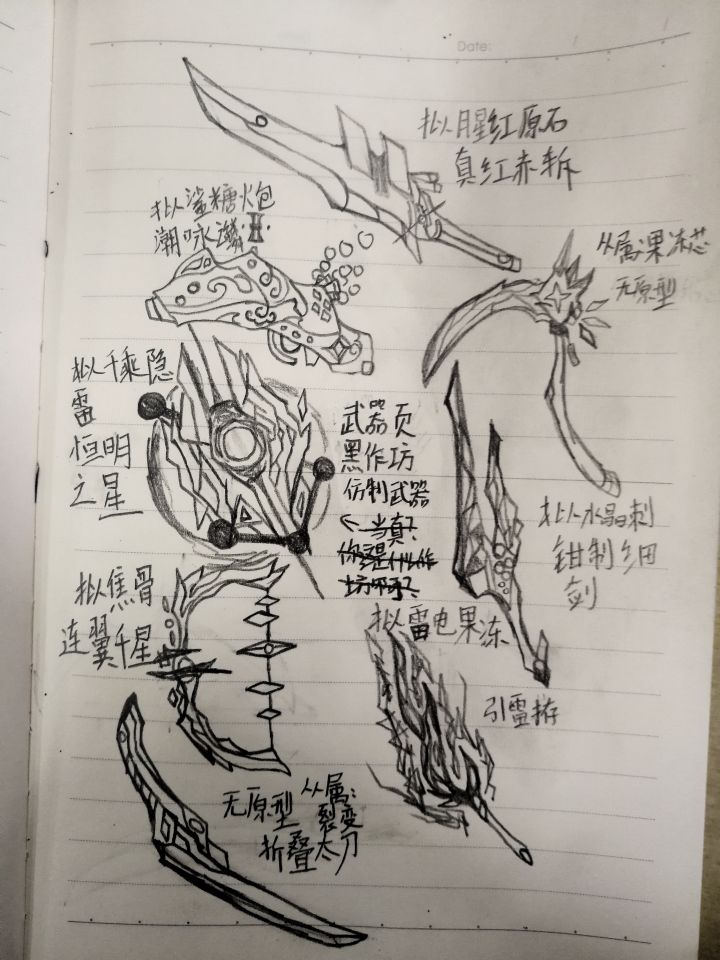 Date:
拟腥红原石
真红赤斩
拟鲨糖炮
潮咏 II.
从属:果冻芯
无原型
拟千乘隐
雷
恒明
之星
武器页
黑作坊
仿制武器
当真?
拟水晶刺
钳制细
剑
拟焦骨
连翼千星
拟雷电果冻
引雷
无原型
从属:
裂变
折叠太刀